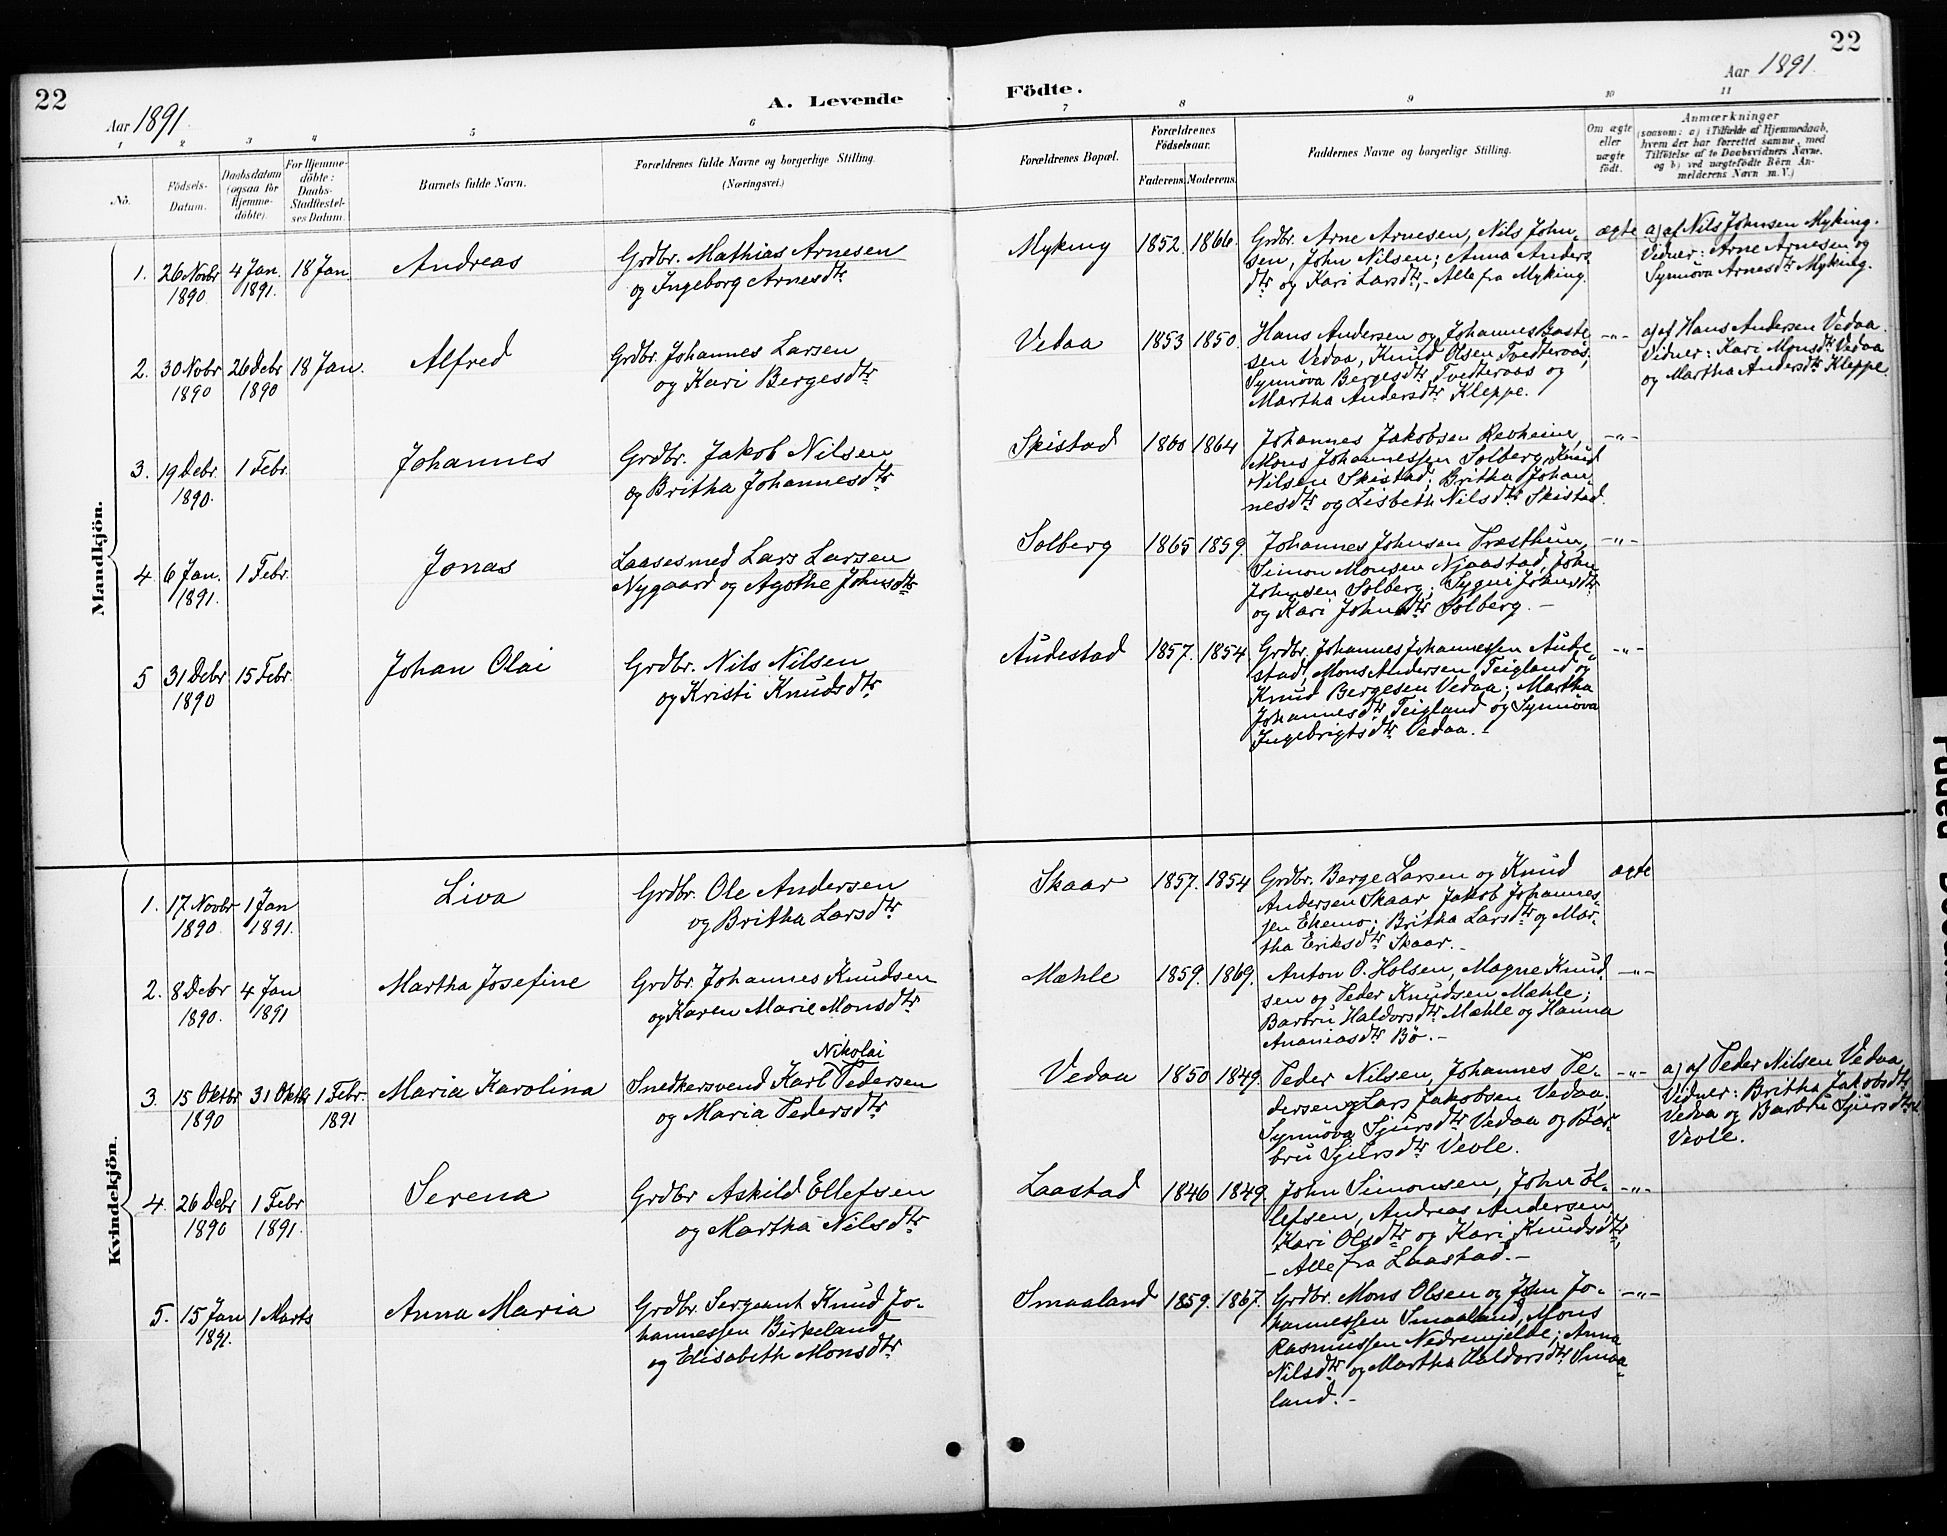 22
22
Aar 1891.
A. Levende
Födte.
Aar 1891.
1 2 3 4 5 6 7 8 9 10 11
No.
Födsels-
Datum.
Daabsdatum
(ogsaa for
Hjemme-
döbte).
For Hjemme-
döbte:
Daabs-
Stadfæstel-
ses Datum.
Barnets fulde Navn.
Forældrenes fulde Navne og borgerlige Stilling.
(Næringsvei.)
Forældrenes Bopæl.
Forældrenes
Födselsaar.
Faderens. Moderens.
Faddernes Navne og borgerlige Stilling.
Om ægte
eller
uægte
födt.
Anmærkninger
(saasom: a) i Tilfælde af Hjemmedaab,
hvem der har forrettet samme, med
Tilföielse af to Daabsvidners Navne,
og b) ved uægtefödte Börn An-
melderens Navn m. V.)
Mandkjön.
1. 26 Novbr 1890 4 Jan. 1891. 18 Jan
Andreas
Grdbr. Mathias Arnesen
og Ingeborg Arnesdtr
Myking 1852. 1866.
Grdbr. Arne Arnesen, Nils John-
sen, John Nilsen; Anna Anders
dtr og Kari Larsdtr, - Alle fra Myking.
ægte
a) af Nils Johnsen Myking.
Vidner: Arne Arnesen og
Synnöva Arnesdtr Myking.
2. 30 Novbr 1890 26 Debr 1890 18 Jan.
Alfred
Grdbr. Johannes Larsen
og Kari Bergesdtr
Vedaa 1853 1850.
Hans Andersen og Johannes Baste-
sen Vedaa, Knud Olsen Tvedteraas,
Synnöva Bergesdtr Tvedteraas og
Martha Andersdtr Kleppe.
-"-
a) af Hans Andersen Vedaa.
Vidner: Kari Monsdtr Vedaa
og Martha Andersdtr Kleppe.
3. 19 Debr 1890. 1 Febr.
Johannes
Grdbr. Jakob Nilsen
og Britha Johannesdtr
Skistad 1860 1864
Johannes Jakobsen Revheim,
Mons Johannessen Solberg, Knud
Nilsen Skistad; Britha Johan-
nesdtr og Lisbeth Nilsdtr Skistad.
-"-
4 6 Jan. 1891. 1 Febr.
Jonas
Laasesmed Lars Larsen
Nygaard og Agothe Johnsdtr
Solberg 1865 1859.
Johannes Johnsen Præsthun,
Simon Monsen Njaastad, John
Johnsen Solberg; Sygni Johnsdtr
og Kari Johnsdtr Solberg. -
-"-
5 31 Debr 1890 15 Febr.
Johan Olai
Grdbr. Nils Nilsen
og Kristi Knudsdtr
Audestad 1857. 1854
Grdbr. Johannes Johannessen Aude-
stad, Mons Andersen Teigland og
Knud Bergesen Vedaa; Martha
Johannesdtr Teigland og Synnöva
Ingebrigtsdtr Vedaa. -
-"-
Kvindekjön.
1. 17 Novbr 1890. 1 Jan 1891.
Liva
Grdbr. Ole Andersen
og Britha Larsdtr
Skaar 1857. 1854
Grdbr. Berge Larsen og Knud
Andersen Skaar Jakob Johannes-
sen Ekemo; Britha Larsdtr og Mar-
tha Eriksdtr Skaar. -
ægte
2. 8 Debr 1890. 4 Jan 1891
Martha Josefine
Grdbr. Johannes Knudsen
og Karen Marie Monsdtr
Mæhle 1859. 1869.
Anton O. Holsen, Magne Knud
sen og Peder Knudsen Mæhle;
Barbru Haldorsdtr Mæhle og Hanna
Ananiasdtr Bö. -
-"-
3. 15 Oktbr 1890 31 Oktbr 1 Febr. 1891
Maria Karolina
Nikolai
Snedkersvend Karl Pedersen
og Maria Pedersdtr
Vedaa 1850 1849.
Peder Nilsen, Johannes Pe-
dersen og Lars Jakobsen Vedaa,
Synnöva Sjursdtr Vedaa og Bar-
bru Sjursdtr Vevle.
-"-
a) af Peder Nilsen Vedaa,
Vidner: Britha Jakobsdtr
Vedaa og Barbru Sjursdtr
Vevle.
4. 26 Debr 1890 1 Febr 1891.
Serena
Grdbr Askild Ellefsen
og Martha Nilsdtr
Laastad 1846 1849.
John Simonsen, John El-
lefsen, Andreas Andersen,
Kari Olsdtr og Kari Knudsdtr,
- Alle fra Laastad. -
-"-
5. 15 Jan 1891. 1 Marts
Anna Maria
Grdbr. Sergeant Knud Jo-
hannessen Birkeland
og Elisabeth Monsdtr
Smaaland 1859. 1867.
Grdbr. Mons Olsen og John Jo-
hannessen Smaaland, Mons
Rasmussen Nedremjelde; Anna
Nilsdtr og Martha Haldorsdtr Smaa-
land. -
-"-